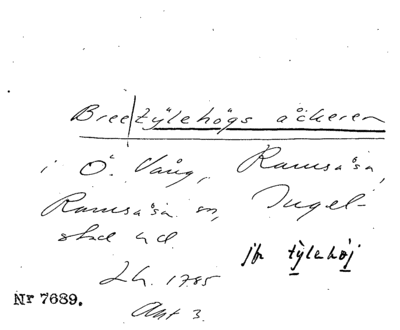 Bree|tÿlehögs åckeren
i Ö. Vång, Ramsåsa,
Ramsåsa sn, Ingel-
stad hd.
jfr tylehöj
Lh. 1785
Akt 3.
Nr 7689.